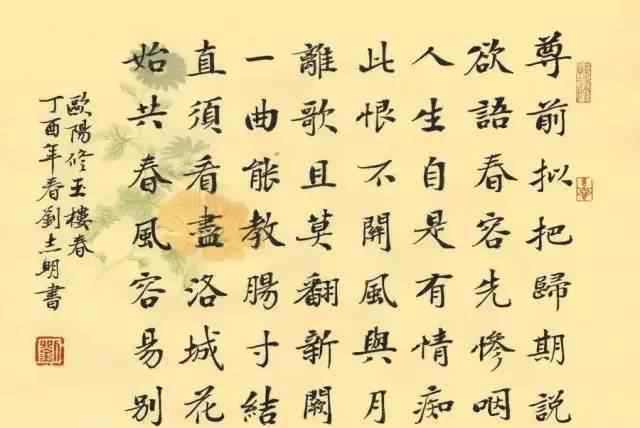 尊前拟把歸期說
欲語春容先慘咽
人生自是有情痴
此恨不關風與月
離歌且莫翻新闋
一曲能教腸寸結
直須看盡洛城花
始共春風容易別
歐陽修玉樓春
丁酉年春劉志明書